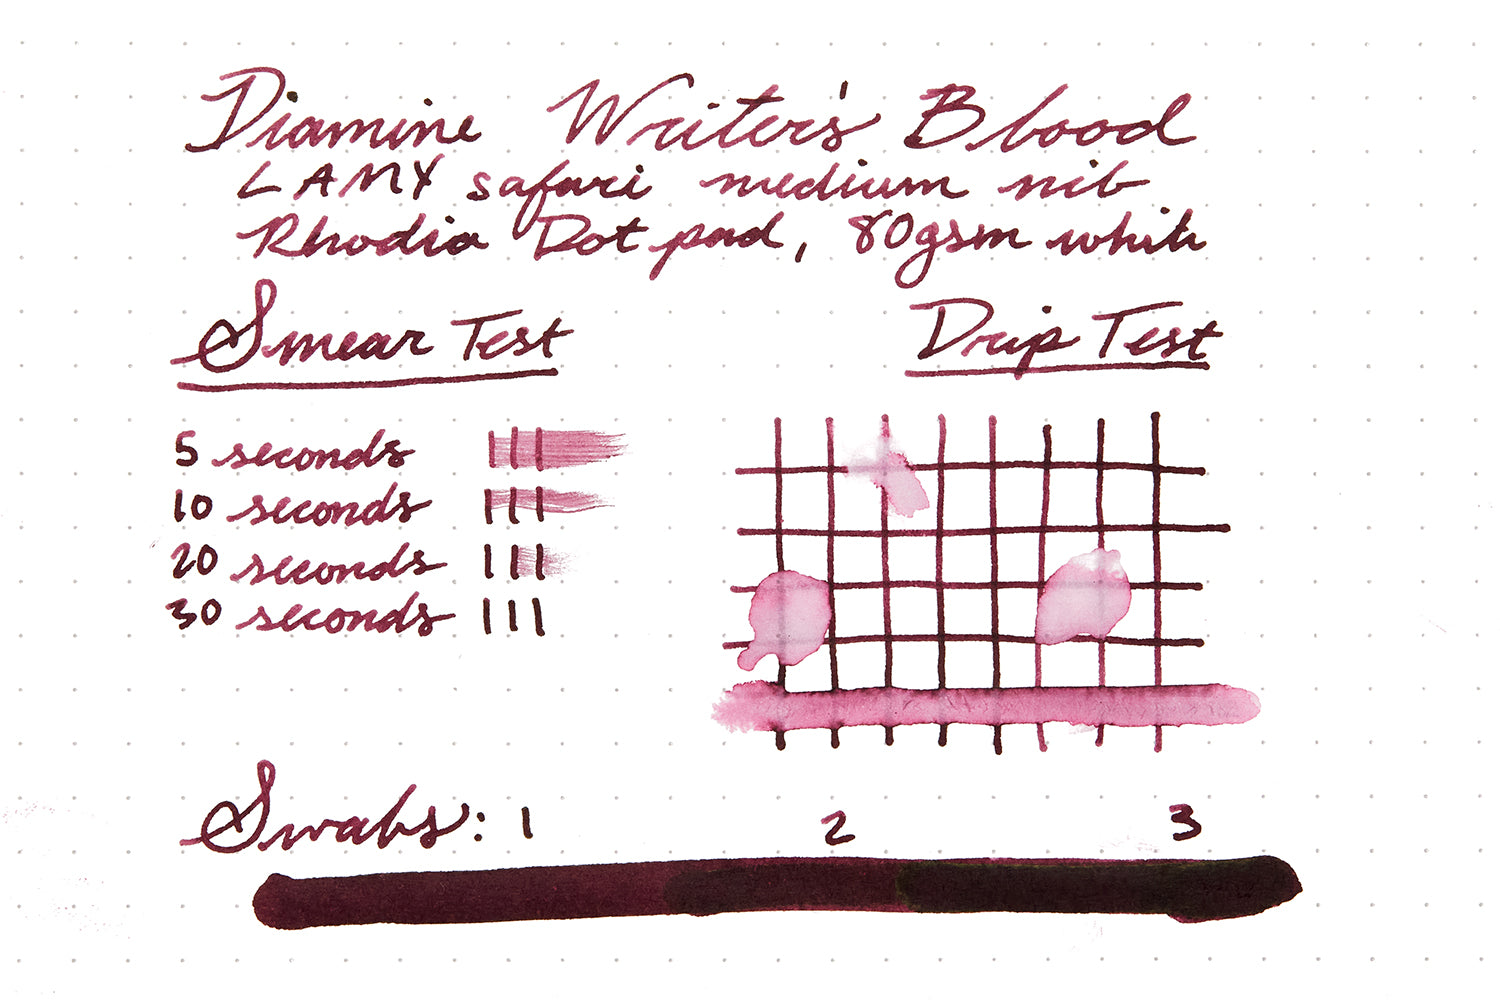 Diamine Writer's Blood
LAMY safari medium nib
Rhodia Dot pad, 80gsm white
Smear Test
Drip Test
5 seconds
10 seconds
20 seconds
30 seconds
Swabs: 1 2 3